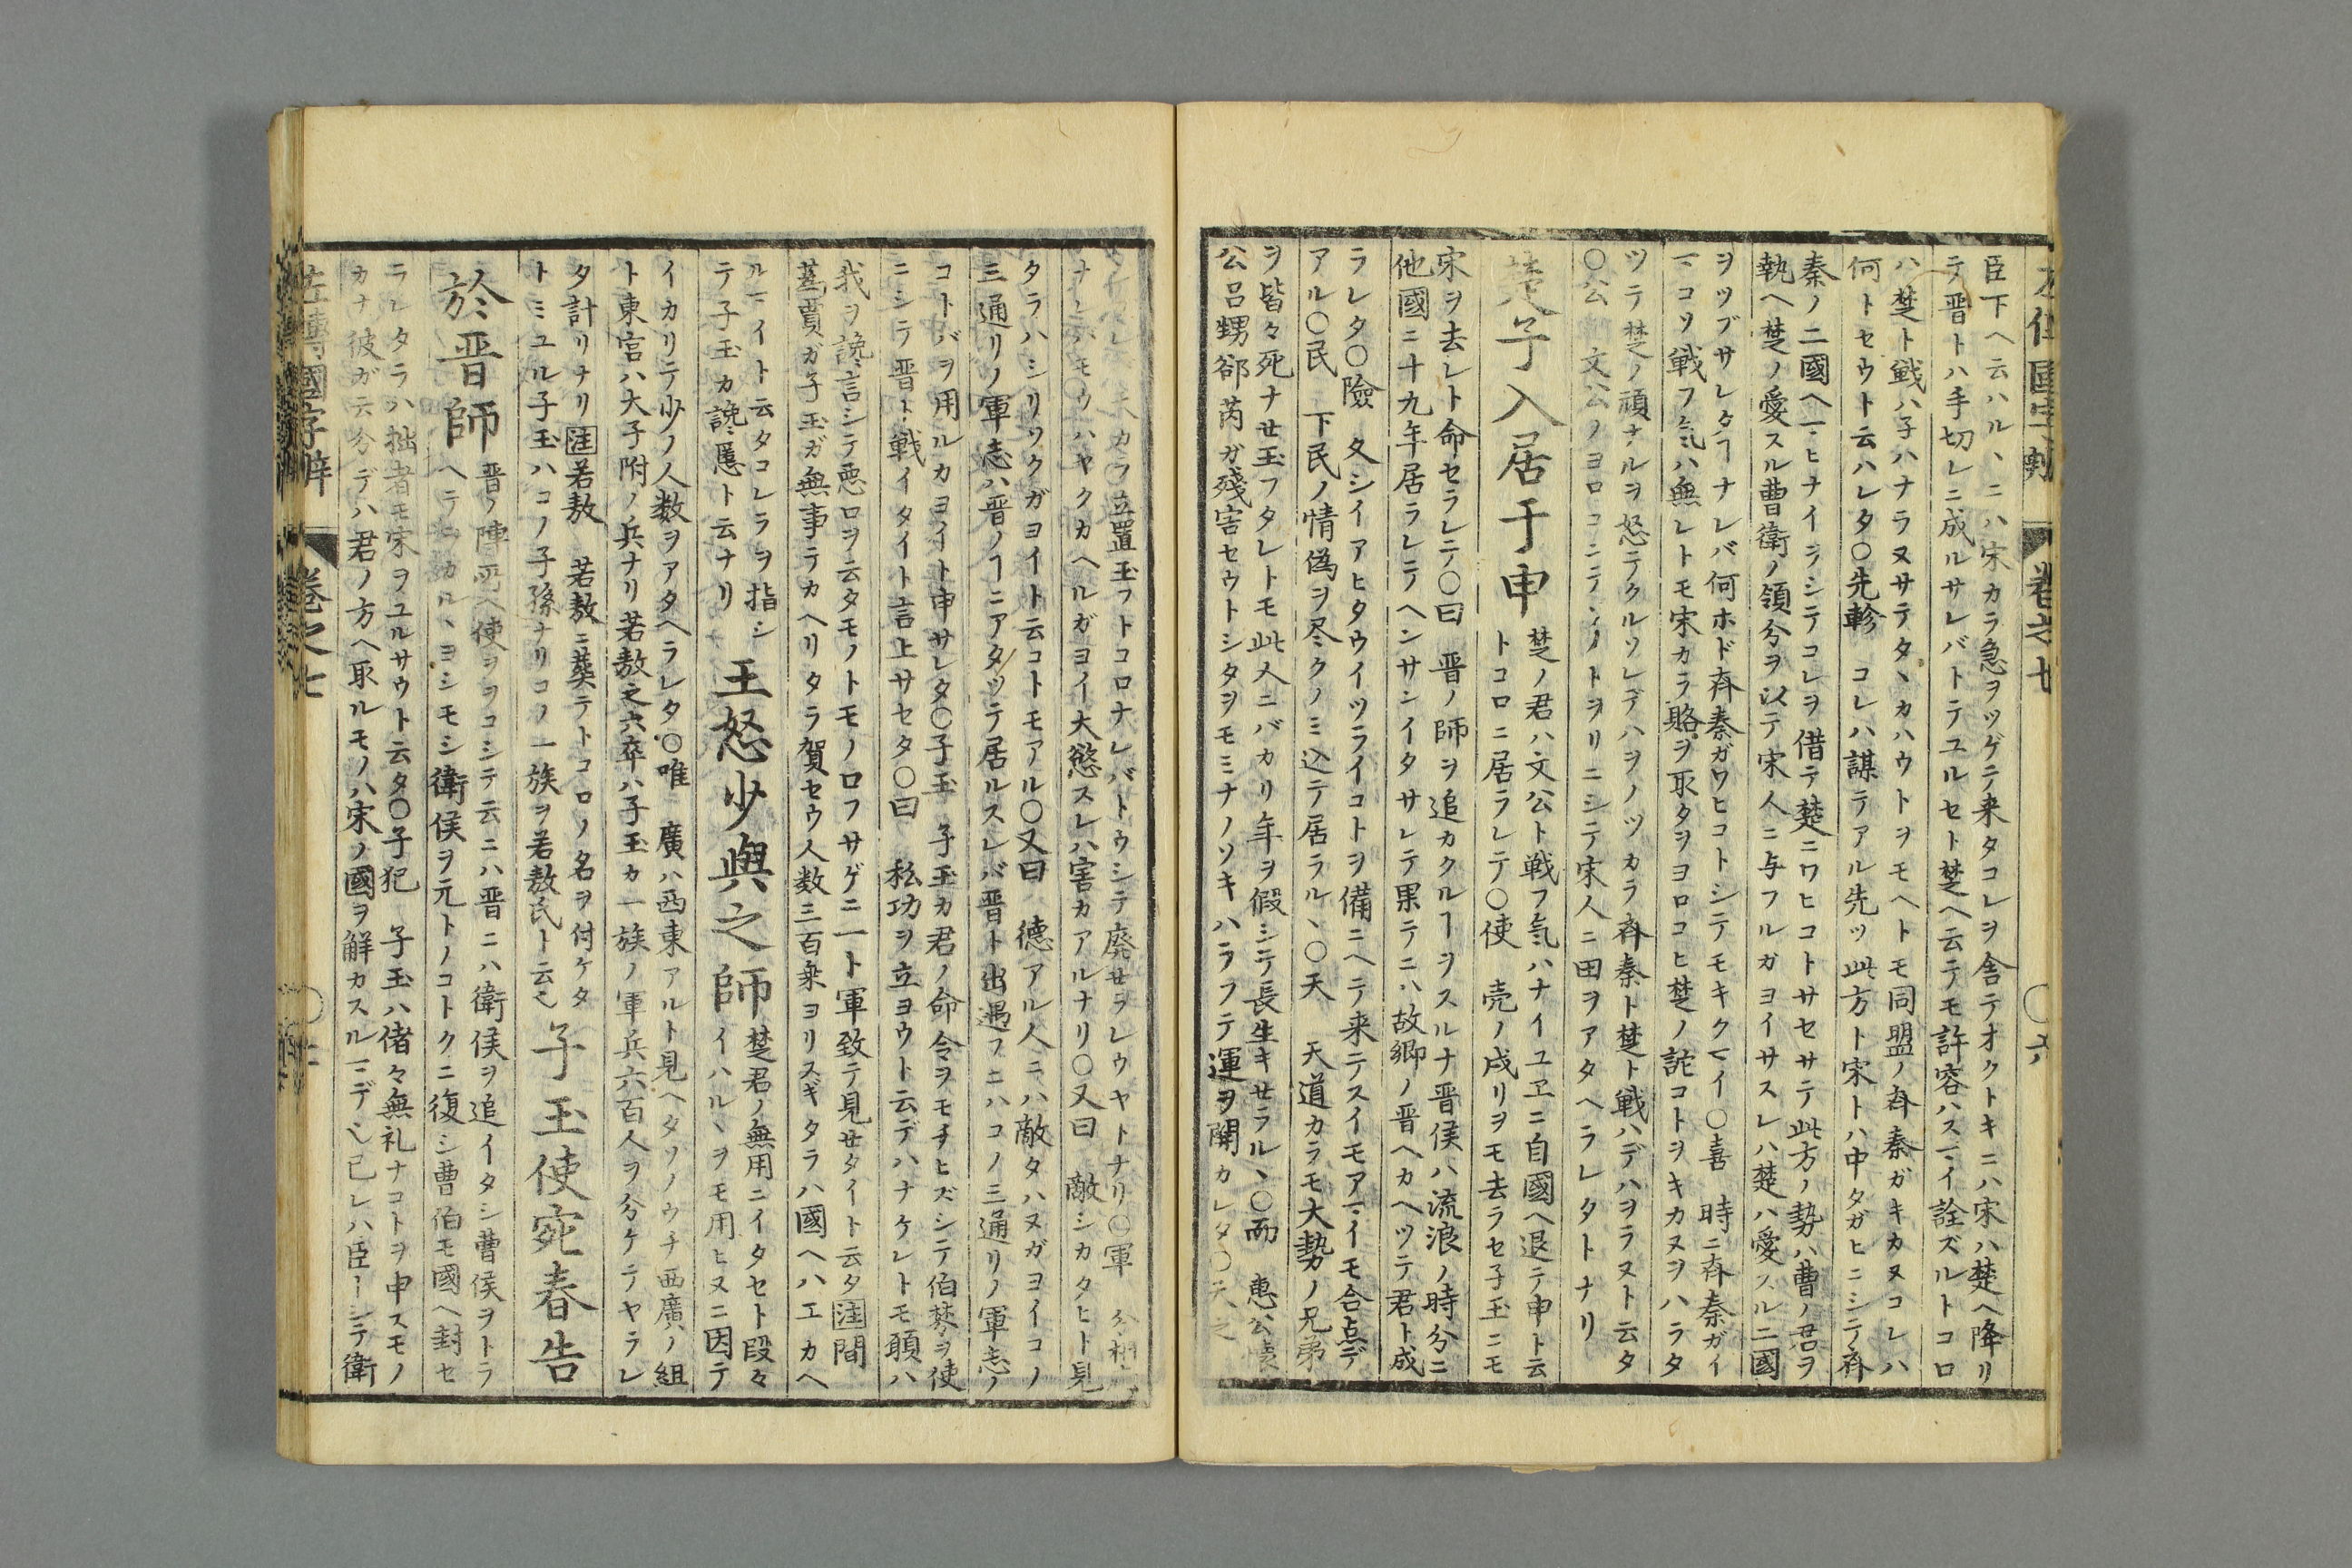 臣下ヘ云ハルヽニハ宋カラ急ヲツゲテ来タコレヲ舎テオクトキニハ宋ハ楚ヘ降リ
テ晋トハ手切レニ成ルサレバトテユルセト楚ヘ云テモ許容ハスマイ詮ズルトコロ
ハ楚ト戦ハ子ハナラヌサテタヽカハウトヲモヘトモ同盟ノ斉秦ガキカヌコレハ
何トセウト云ハレタ〇先軫 コレハ謀テアル先ツ此方ト宋トハ中タガヒニシテ斉
秦ノ二國ヘマヒナイヲシテコレヲ借テ楚ニワヒコトサセサテ此方ノ勢ハ曹ノ君ヲ
執ヘ楚ノ愛スル曹衛ノ領分ヲ以テ宋人ニ与フルガヨイサスレハ楚ハ愛スル二國
ヲツブサレタヿナレバ何ホド斉秦ガワヒコトシテモキクマイ〇喜 時ニ斉秦ガイ
マコソ戦フ氣ハ無レトモ宋カラ賂ヲ取タヲヨロコヒ楚ノ詫コトヲキカヌヲハラタ
ツテ楚ノ頑ナルヲ怒テクルソレデハヲノツカラ斉秦ト楚ト戦ハデハヲラヌト云タ
〇公 文公ノヨロコニテ ノトヲリニシテ宋人ニ田ヲアタヘラレタトナリ
楚子入居于申
楚ノ君ハ文公ト戦フ氣ハナイユヱニ自國ヘ退テ申ト云
トコロニ居ラレテ〇使 売ノ戍リヲモ去ラセ子玉ニモ
宋ヲ去レト命セラレテ〇曰 晋ノ師ヲ追カクルヿヲスルナ晋侯ハ流浪ノ時分ニ
他國ニ十九年居ラレテヘンサシイタサレテ果テニハ故郷ノ晋ヘカヘツテ君ト成
ラレタ〇險 久シイアヒタウイツライコトヲ備ニヘテ来テスイモアマイモ合点デ
アル〇民 下民ノ情偽ヲ尽クノミ込テ居ラルヽ〇天 天道カラモ大勢ノ兄弟
ヲ皆々死ナセ玉フタレトモ此人ニバカリ年ヲ假シテ長生キセラルヽ〇而 惠公懐
公呂甥郤芮ガ殘害セウトシタヲモミナノソキハラフテ運ヲ開カレタ〇天之
カラ立置玉フトコロナレバトウシテ廃セラレウヤトナリ〇軍
ナレバモウハヤクカヘルガヨイ大慾スレハ害カアルナリ〇又曰 敵シカタヒト見
タラハシリソクガヨイト云コトモアル〇又曰 德アル人ニハ敵タハヌガヨイコノ
三通リノ軍志ハ晋ノヿニアタツテ居ルスレバ晋ト出遇フニハコノ三通リノ軍志ノ
コトバヲ用ルカヨイト申サレタ〇子玉 子玉カ君ノ命令ヲモチヒズシテ伯棼ヲ使
ニシテ晋ト戦イタイト言上サセタ〇曰 私功ヲ立ヨウト云デハナケレトモ願ハ
我ヲ讒言シテ惡口ヲ云タモノトモノ口フサゲニ一ト軍致テ見セタイト云タ注間
蔿賈ガ子玉ガ無事テカヘリタラ賀セウ人数三百乗ヨリスギタラハ國ヘハエカヘ
ルマイト云タコレヲ指シ
テ子玉カ讒慝ト云ナリ
王怒少與之師
楚君ノ無用ニイタセト段々
イハルヽヲモ用ヒヌニ因テ
イカリテ少ノ人数ヲアタヘラレタ〇唯 廣ハ西東アルト見ヘタソノウチ西廣ノ組
ト東宮ハ大子附ノ兵ナリ若敖之六卒ハ子玉カ一族ノ軍兵六百人ヲ分ケテヤラレ
タ計リナリ注若敖 若敖ニ葬テトコロノ名ヲ付ケタ
トミユル子玉ハコノ子孫ナリコノ一族ヲ若敖氏ト云也
子玉使宛春告
於晋師
晋ノ陣所ヘ使ヲヲコシテ云ニハ晋ニハ衛侯ヲ追イタシ曹侯ヲトラ
ヘラルヽヨシモシ衛侯ヲ元トノコトクニ復シ曹伯モ國ヘ封セ
ラレタラハ拙者モ宋ヲユルサウト云タ〇子犯 子玉ハ偖々無礼ナコトヲ申スモノ
カナ彼ガ云分デハ君ノ方ヘ取ルモノハ宋ノ國ヲ解カスルマデ也已レハ臣トシテ衛
左傳國字辯 卷之七